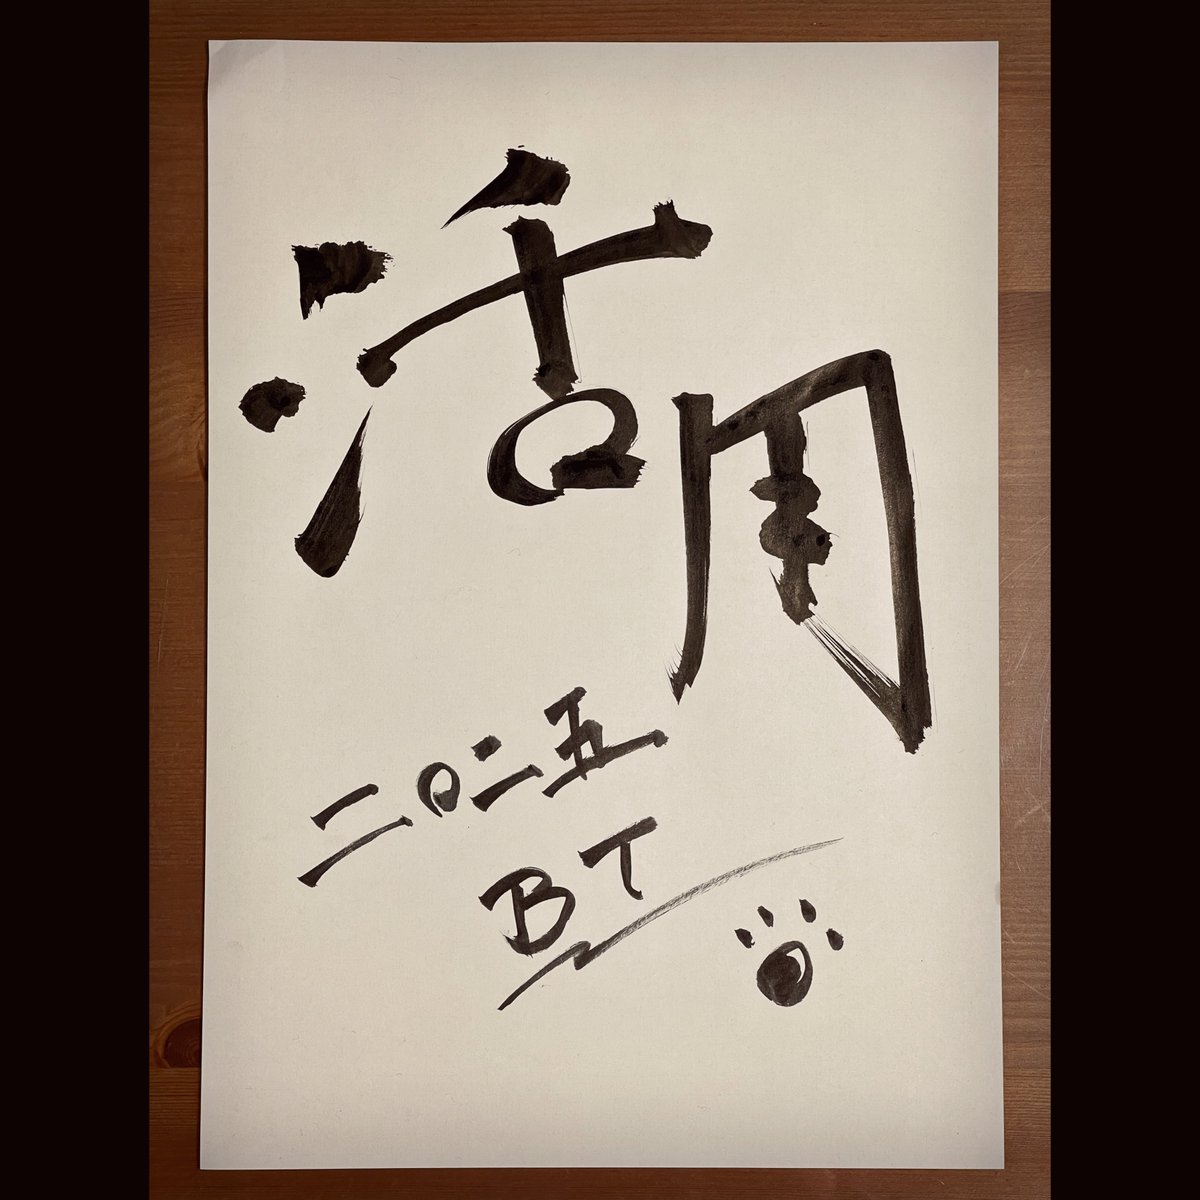 活用
二〇二五
BT